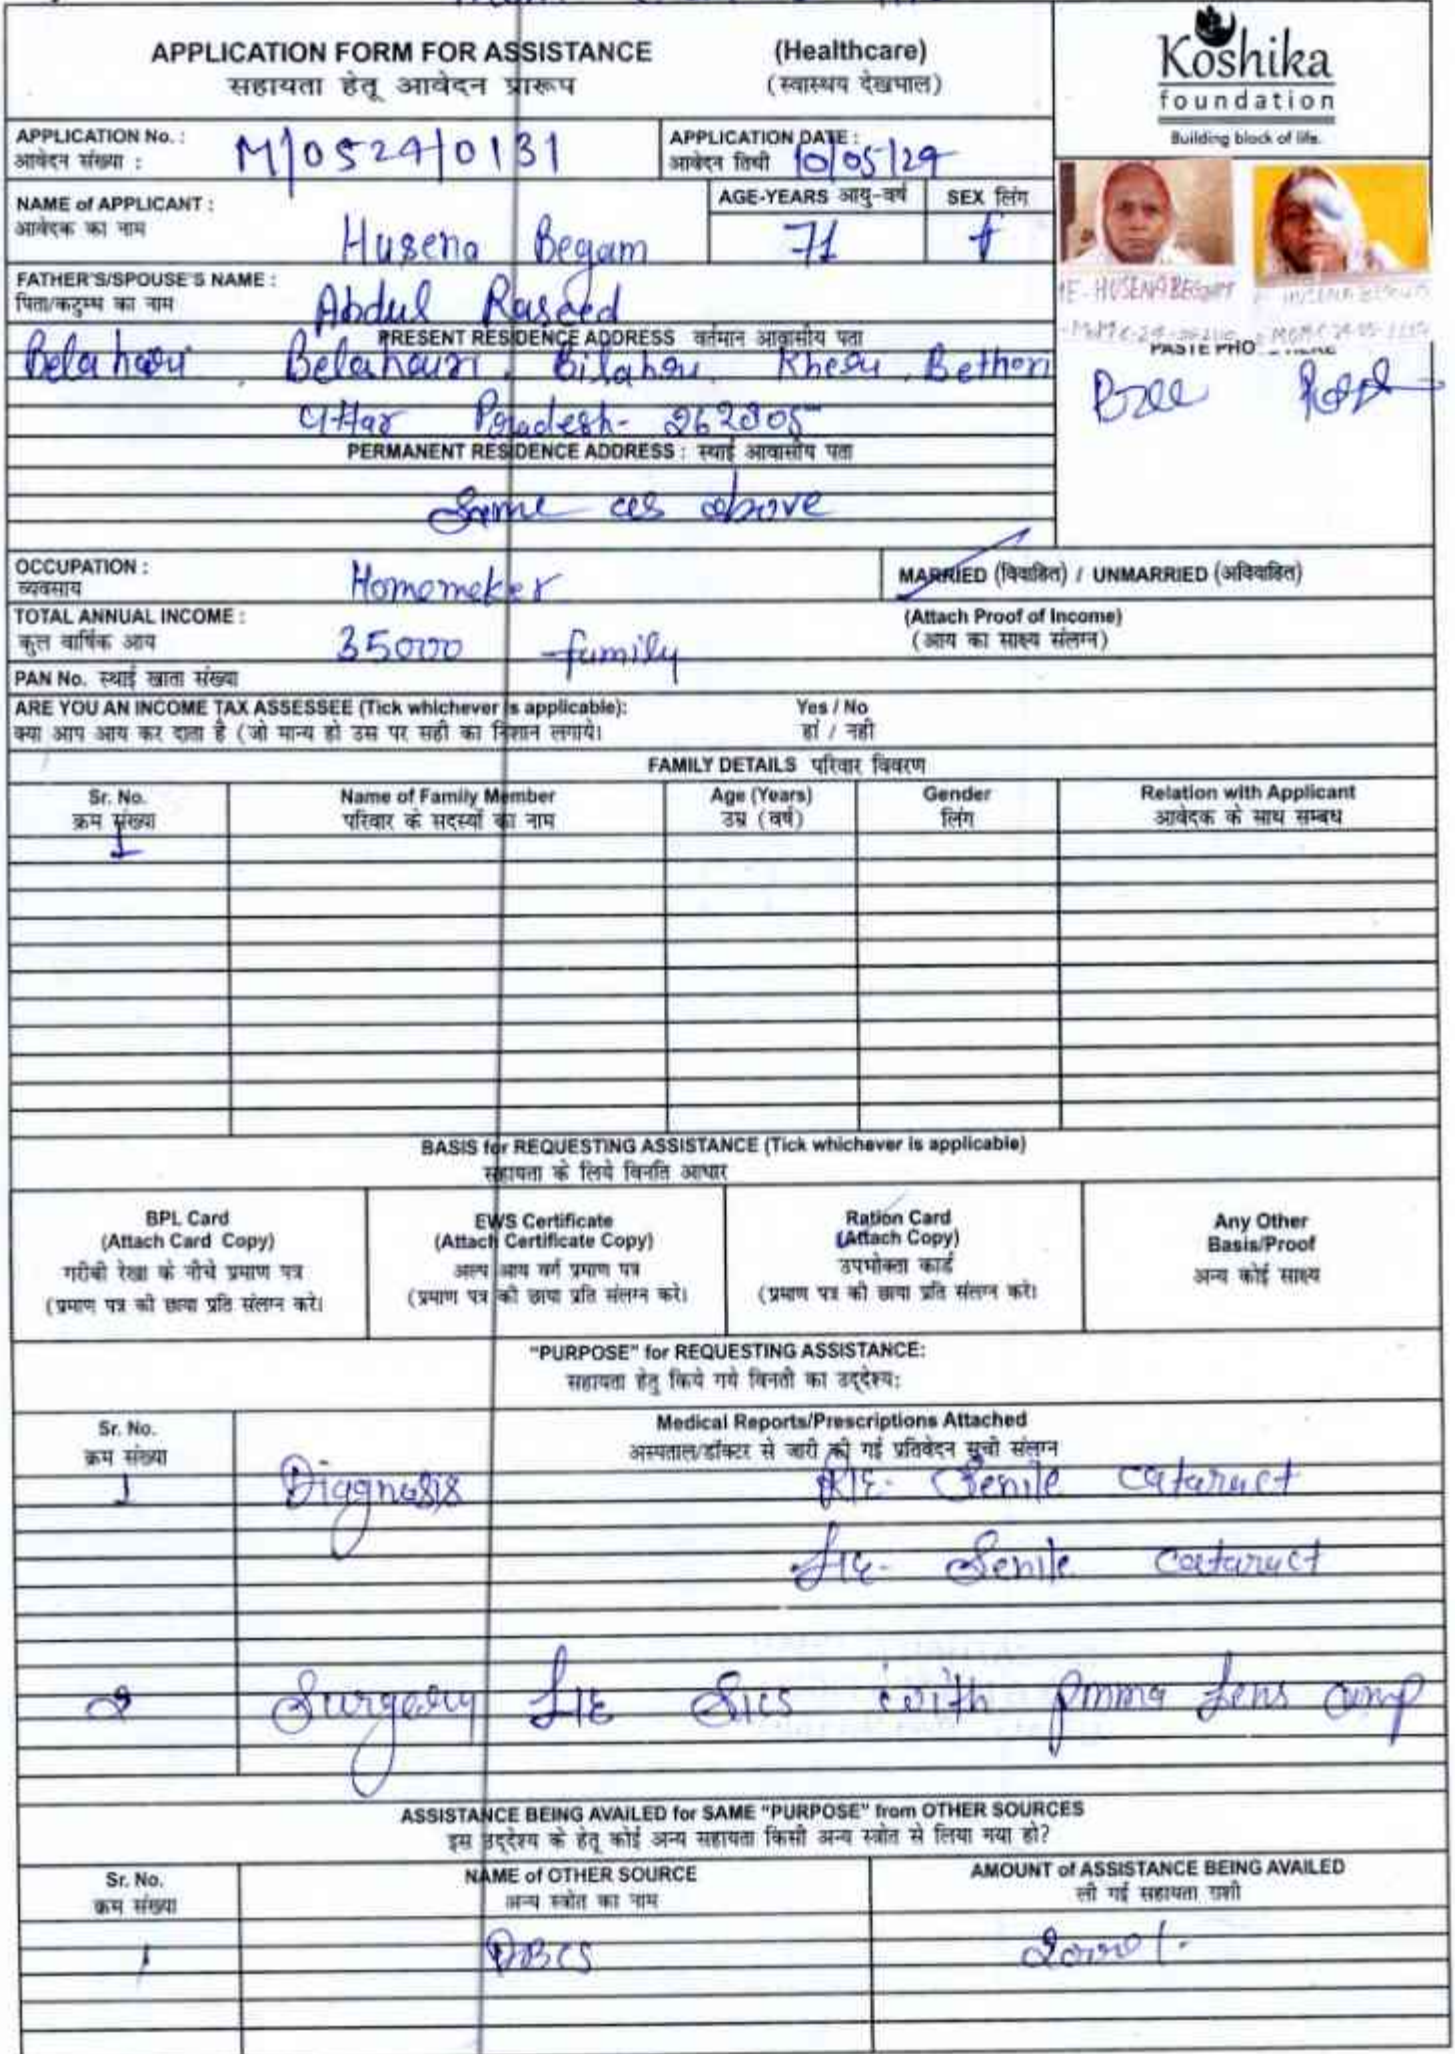 APPLICATION FORM FOR ASSISTANCE (Healthcare)
सहायता हेतू आवेदन प्रारूप (स्वास्थय देखभाल)
Koshika
foundation
Building block of life.
APPLICATION No. : M/0524/0131
आवेदन संख्या :
APPLICATION DATE : 10/05/24
आवेदन तिथी
NAME of APPLICANT : Husena Begam
आवेदक का नाम
AGE-YEARS आयु-वर्ष 71
SEX लिंग f
FATHER'S/SPOUSE'S NAME : Abdul Raseed
पिता/कटुम्ध का नाम
HUSENA BEGUM
PRESENT RESIDENCE ADDRESS वर्तमान आवासीय पता
Belahari, Belahauri, Bilahau, Kheri, Betheri
Uttar Pradesh- 262805
PASTE PHO HERE
PERMANENT RESIDENCE ADDRESS : स्थाई आवासीय पता
Same as above
OCCUPATION : Homemeker
व्यवसाय
MARRIED (विवाहित) / UNMARRIED (अविवाहित)
TOTAL ANNUAL INCOME : 35000 family
कुल वार्षिक आय
(Attach Proof of Income)
(आय का साक्ष्य संलग्न)
PAN No. स्थाई खाता संख्या
ARE YOU AN INCOME TAX ASSESSEE (Tick whichever is applicable): Yes / No
क्या आप आय कर दाता है (जो मान्य हो उस पर सही का निशान लगाये। हां / नही
FAMILY DETAILS परिवार विवरण
Sr. No. Name of Family Member Age (Years) Gender Relation with Applicant
क्रम संख्या परिवार के सदस्यों का नाम उम्र (वर्ष) लिंग आवेदक के साथ सम्बध
1
BASIS for REQUESTING ASSISTANCE (Tick whichever is applicable)
सहायता के लिये विनति आधार
BPL Card
(Attach Card Copy)
गरीबी रेखा के नीचे प्रमाण पत्र
(प्रमाण पत्र की छाया प्रति संलग्न करे।
EWS Certificate
(Attach Certificate Copy)
अल्प आय वर्ग प्रमाण पत्र
(प्रमाण पत्र की छाया प्रति संलग्न करे।
Ration Card
(Attach Copy)
उपभोक्ता कार्ड
(प्रमाण पत्र की छाया प्रति संलग्न करे।
Any Other
Basis/Proof
अन्य कोई साक्ष्य
"PURPOSE" for REQUESTING ASSISTANCE:
सहायता हेतु किये गये विनती का उद्देश्य:
Sr. No. Medical Reports/Prescriptions Attached
क्रम संख्या अस्पताल/डॉक्टर से जारी की गई प्रतिवेदन सूची संलग्न
1 Diagnosis R/E- Senile cataract
L/E- Senile cataract
2 Surgery L/E Sics with pmma lens camp
ASSISTANCE BEING AVAILED for SAME "PURPOSE" from OTHER SOURCES
इस उद्देश्य के हेतू कोई अन्य सहायता किसी अन्य स्त्रोत से लिया गया हो?
Sr. No. NAME of OTHER SOURCE AMOUNT of ASSISTANCE BEING AVAILED
क्रम संख्या अन्य स्त्रोत का नाम ली गई सहायता राशी
1 DBCS 2000/-